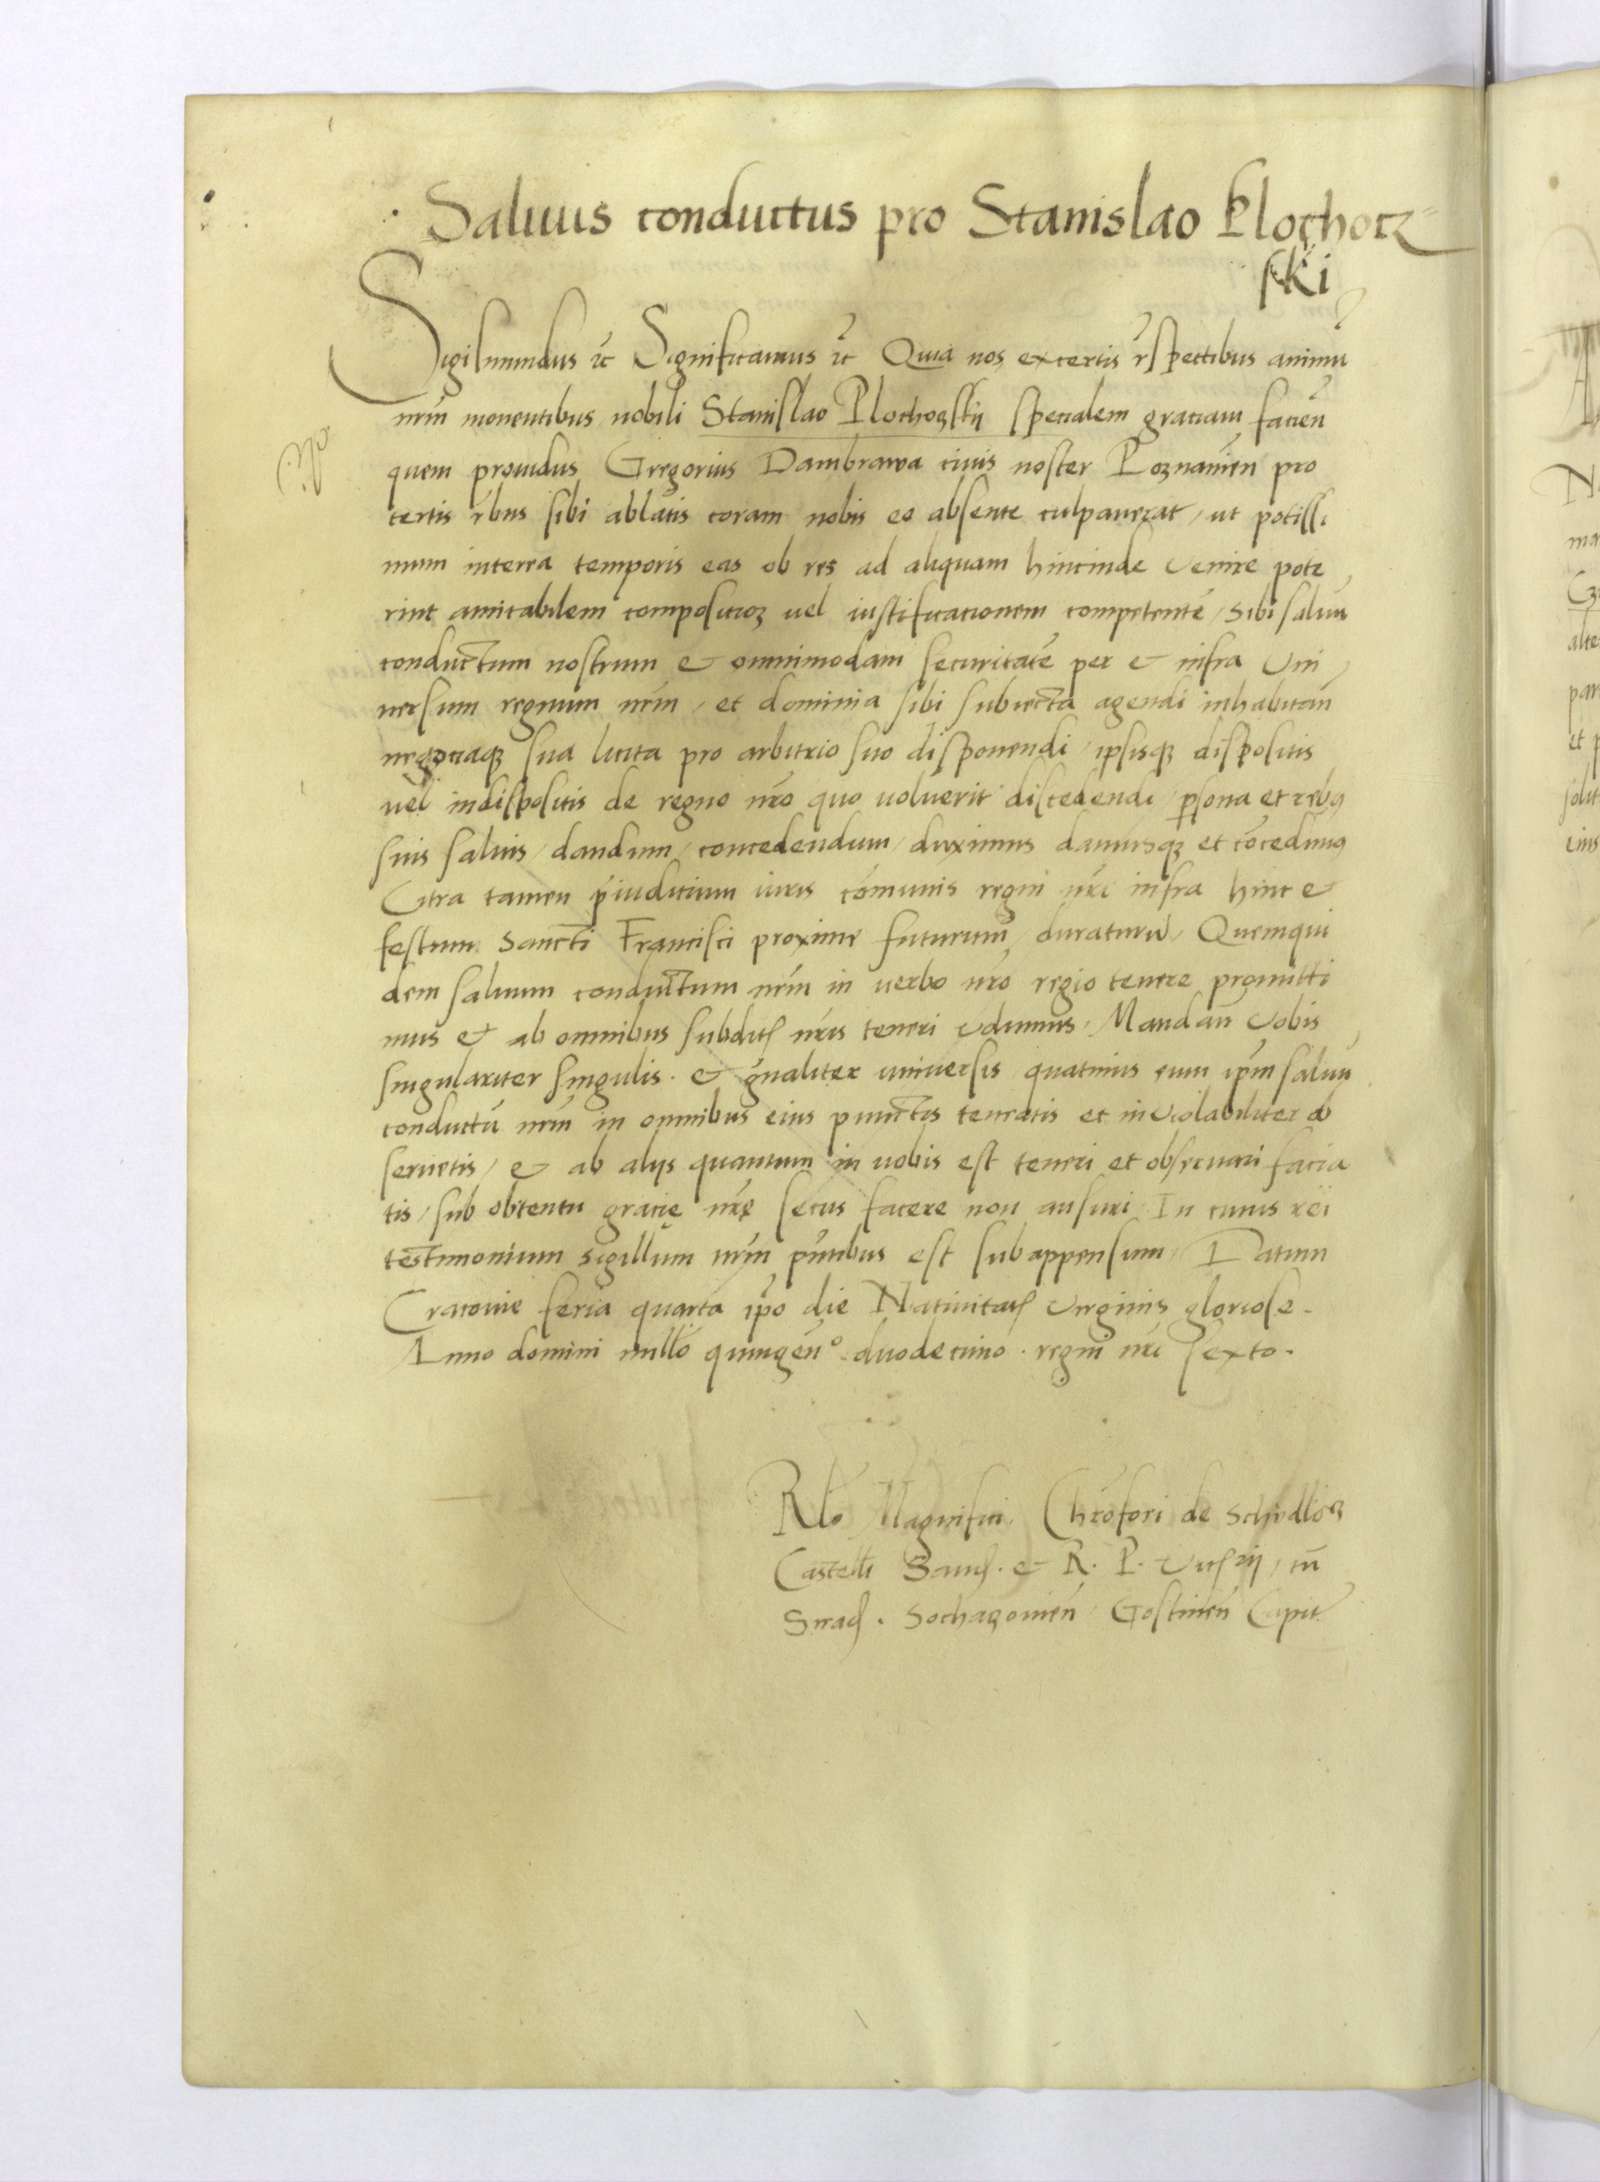 Saluus conductus pro Stanislao Klochocz=
ski
Sigismundus ꝛc̃ Significamus ꝛc̃ Quia nos excertis r̃spectibus animũ
nr̃m mouentibus nobili Stanislao Plochoʒskij specialem graciam facien̄
quem prouidus Gregorius Dambrawa ciuis noster Poznanien̄ pro
certis r̃bus sibi ablatis coram nobis eo absente culpauerat / ut potissi
mum interea temporis eas ob res ad aliquam hincinde Venire pote
rint amicabilem compositioꝫ uel iustificacionem competentē / Sibi saluũ
conductum nostrum & omnimodam securitatē per & infra Uni
uersum regnum nr̃m / et dominia sibi subiecta agendi inhabitan̄
negociaqꝫ sua licita pro arbitrio suo disponendi / ipsisqꝫ dispositis
uel indispositis de regno nr̃o quo uoluerit discedendi / ꝑsona et rebꝰ
suis saluis / dandum / concedendum / duximus damusqꝫ et cõcedimꝰ
Citra tamen p̃iudicium iuris cõmunis regni nr̃i infra hinc &
festum Sancti Francisci proxime futurum / duraturũ / Quemqui
dem saluum conductum nr̃m in uerbo nr̃o regio tenere promitti
mus & ab omnibus subditꝭ nr̃is teneri Vdumus / Mandan̄ Vobis
singulariter singulis . & gñaliter uniuersis quatinus eum ip̃m saluũ
conductũ nr̃m in omnibus eius punctis teneatis et inuiolabiliter ob
seruetis / & ab alijs quantum in uobis est teneri et obseruari facia
tis / sub obtentu gracię nr̃ę secus facere non ausuri In cuius rei
testimonium Sigillum nr̃m p̃ntibus est subappensum / Datum
Cracouie feria quarta ip̃o die Natiuitatꝭ Virginis gloriose .
Anno domini millõ quingen̄º duodecimo . regni nr̃i sexto .
Rl̃o Magnifici Chr̃ofori de Schidlouʒ
Castell̃i Sand . & R . P . Vicꝭrij / cũ
Sirad . Sochaʒouien̄ Gostinen̄ Capit